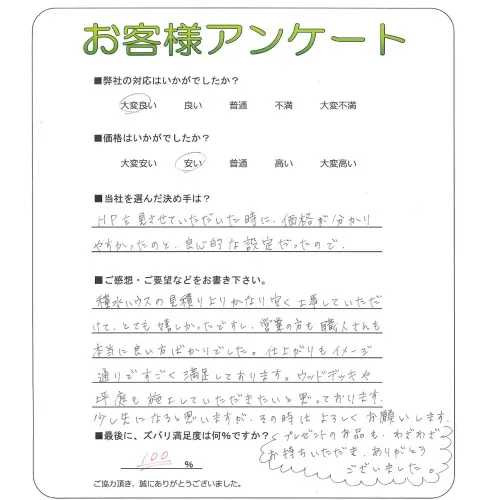 お客様アンケート
■弊社の対応はいかがでしたか？
大変良い 良い 普通 不満 大変不満
■価格はいかがでしたか？
大変安い 安い 普通 高い 大変高い
■当社を選んだ決め手は？
HPを見させていただいた時に、価格が分かり
やすかったのと、良心的な設定だったので。
■ご感想・ご要望などをお書き下さい。
積水ハウスの見積りよりかなり安く工事していただ
けて、とても嬉しかったですし、営業の方も職人さんも
本当に良い方ばかりでした。仕上がりもイメージ
通りですごく満足しております。ウッドデッキや
坪庭も施工していただきたいと思っております。
少し先になると思いますが、その時はよろしくお願いします。
■最後に、ズバリ満足度は何％ですか？
100 ％
プレゼントのお品も、わざわざ
お持ちいただき、ありがとう
ございました。
ご協力頂き、誠にありがとうございました。